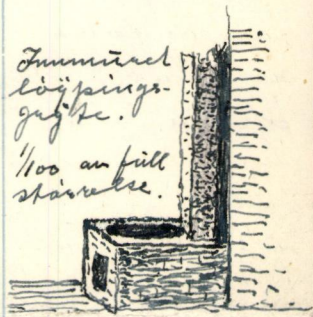 Innmūret
löÿpings-
grÿte.
1/100 av full
størrelse.